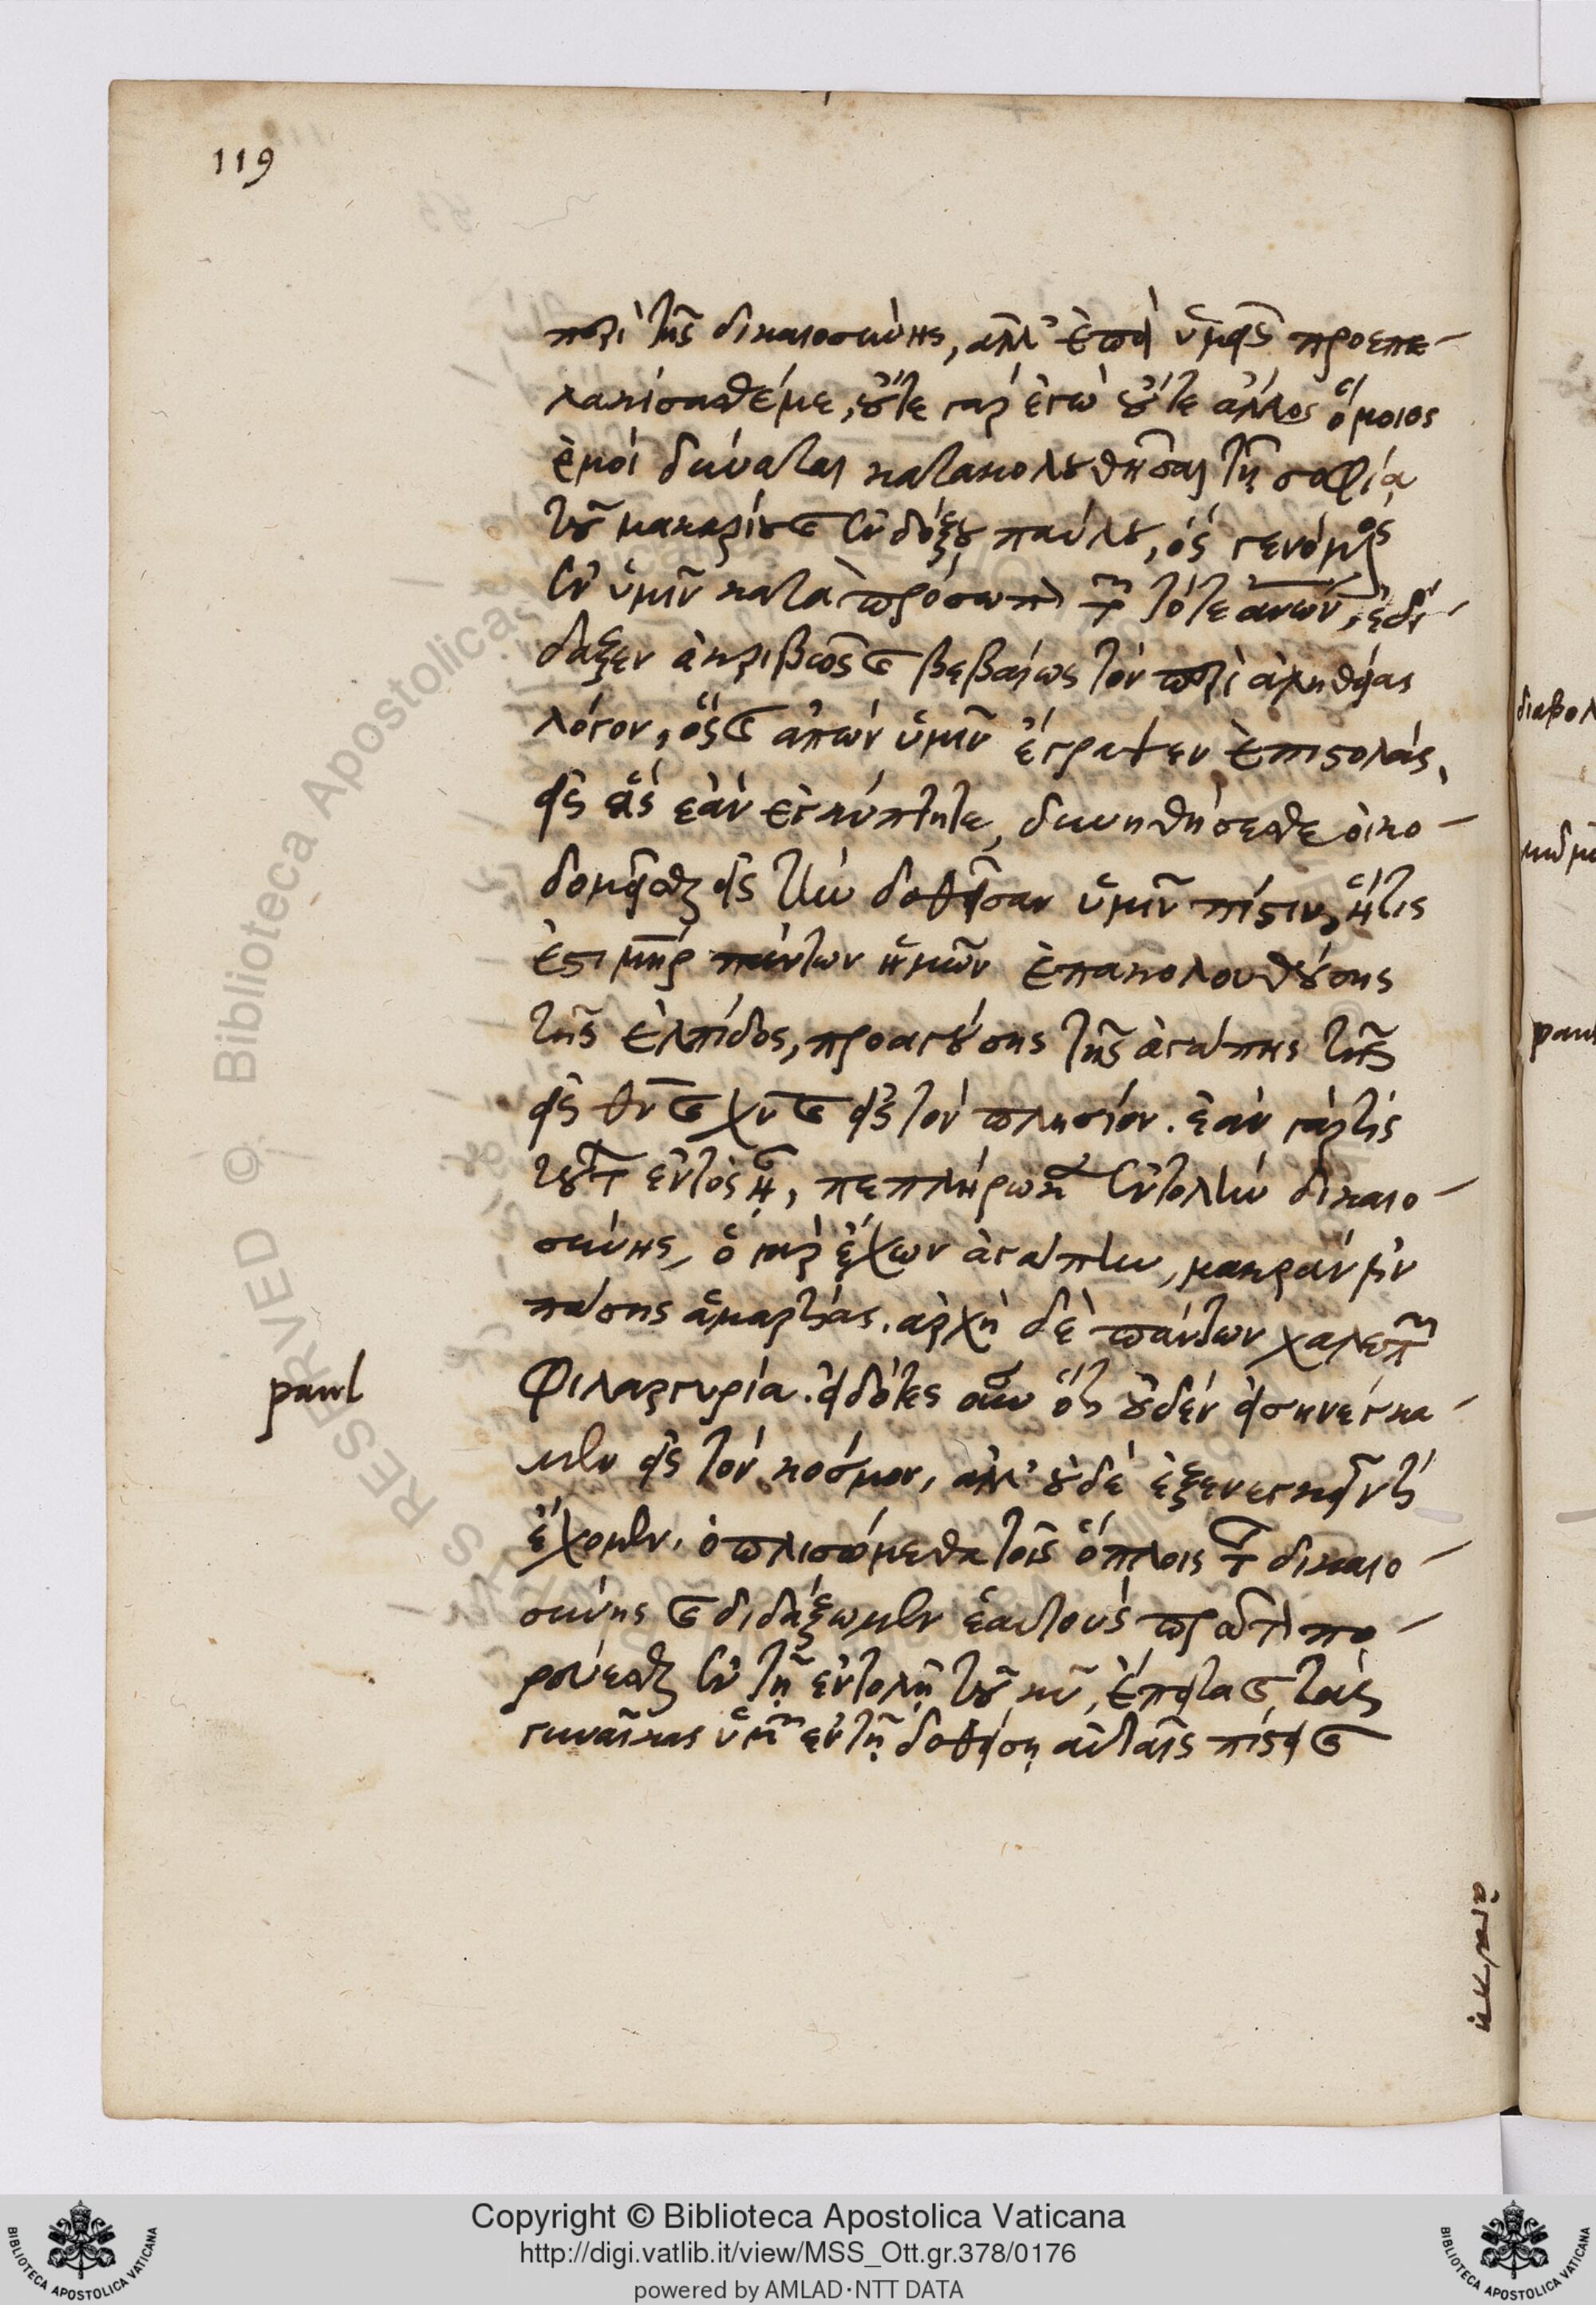 119
περὶ τῆς δικαιοσύνης, ἀλλ' ἐπεὶ ὑμεῖς προεπε-
λακίσασθέ με, οὔτε γὰρ ἐγὼ οὔτε ἄλλος ὅμοιος
ἐμοὶ δύναται κατακολουθῆσαι τῇ σοφίᾳ
τοῦ μακαρίου καὶ ἐνδόξου παύλου, ὃς γενόμενος
ἐν ὑμῖν κατὰ πρόσωπον τῶν τότε ἀνων, ἐδί-
δαξεν ἀκριβῶς καὶ βεβαίως τὸν περὶ ἀληθείας
λόγον, ὃς καὶ ἀπὼν ὑμῖν ἔγραψεν ἐπιστολάς,
εἰς ἃς ἐὰν ἐγκύπτητε, δυνηθήσεσθε οἰκο-
δομεῖσθαι εἰς τὴν δοθεῖσαν ὑμῖν πίστιν, ἥτις
ἐστὶ μηρ πάντων ἡμῶν ἐπακολουθούσης
τῆς ἐλπίδος, προαγούσης τῆς ἀγάπης τῆς
εἰς θν καὶ χν καὶ εἰς τὸν πλησίον. ἐὰν γάρ τις
τούτων ἐντὸς ᾖ, πεπλήρωκεν ἐντολὴν δικαιο-
σύνης, ὁ γὰρ ἔχων ἀγάπην, μακράν ἐστιν
πάσης ἁμαρτίας. ἀρχὴ δὲ πάντων χαλεπῶν
φιλαργυρία. εἰδότες οὖν ὅτι οὐδὲν εἰσηνέγκα-
μεν εἰς τὸν κόσμον, ἀλλ' οὐδὲ ἐξενεγκεῖν τι
ἔχομεν. ὁπλισώμεθα τοῖς ὅπλοις τῆς δικαιο-
σύνης καὶ διδάξωμεν ἑαυτοὺς πρῶτον πο-
ρεύεσθαι ἐν τῇ ἐντολῇ τοῦ κυ, ἔπειτα καὶ τὰς
γυναῖκας ὑμῶν ἐν τῇ δοθείσῃ αὐταῖς πίστει καὶ
paul
ἀγάπῃ
Copyright © Biblioteca Apostolica Vaticana
http://digi.vatlib.it/view/MSS_Ott.gr.378/0176
powered by AMLAD·NTT DATA